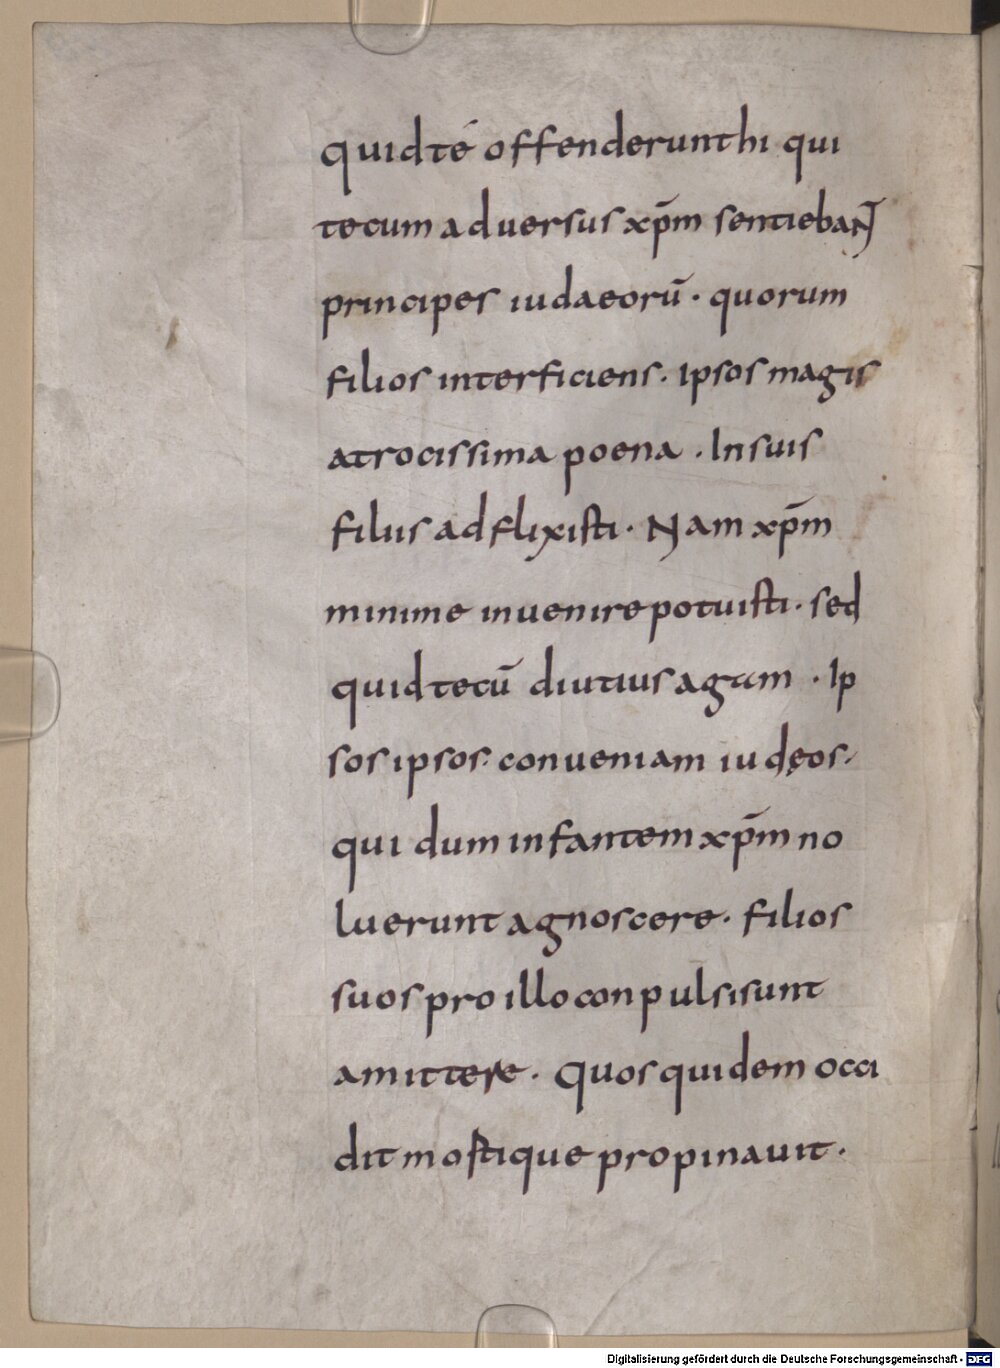 quid té offenderunt hi qui
tecum aduersus xp̄m sentiebant
principes iudaeorū · quorum
filios interficiens · Ipsos magis
atrocissima poena · In suis
filiis adflixisti · Nam xp̄m
minime inuenire potuisti · sed
quid tecū diutius agam · Ip
sos ipsos · conueniam iudęos ·
qui dum infantem xp̄m no
luerunt agnoscere · filios
suos pro illo conpulsi sunt
amittere · Quos quidem occi
dit mostique propinauit ·
Digitalisierung gefördert durch die Deutsche Forschungsgemeinschaft - DFG